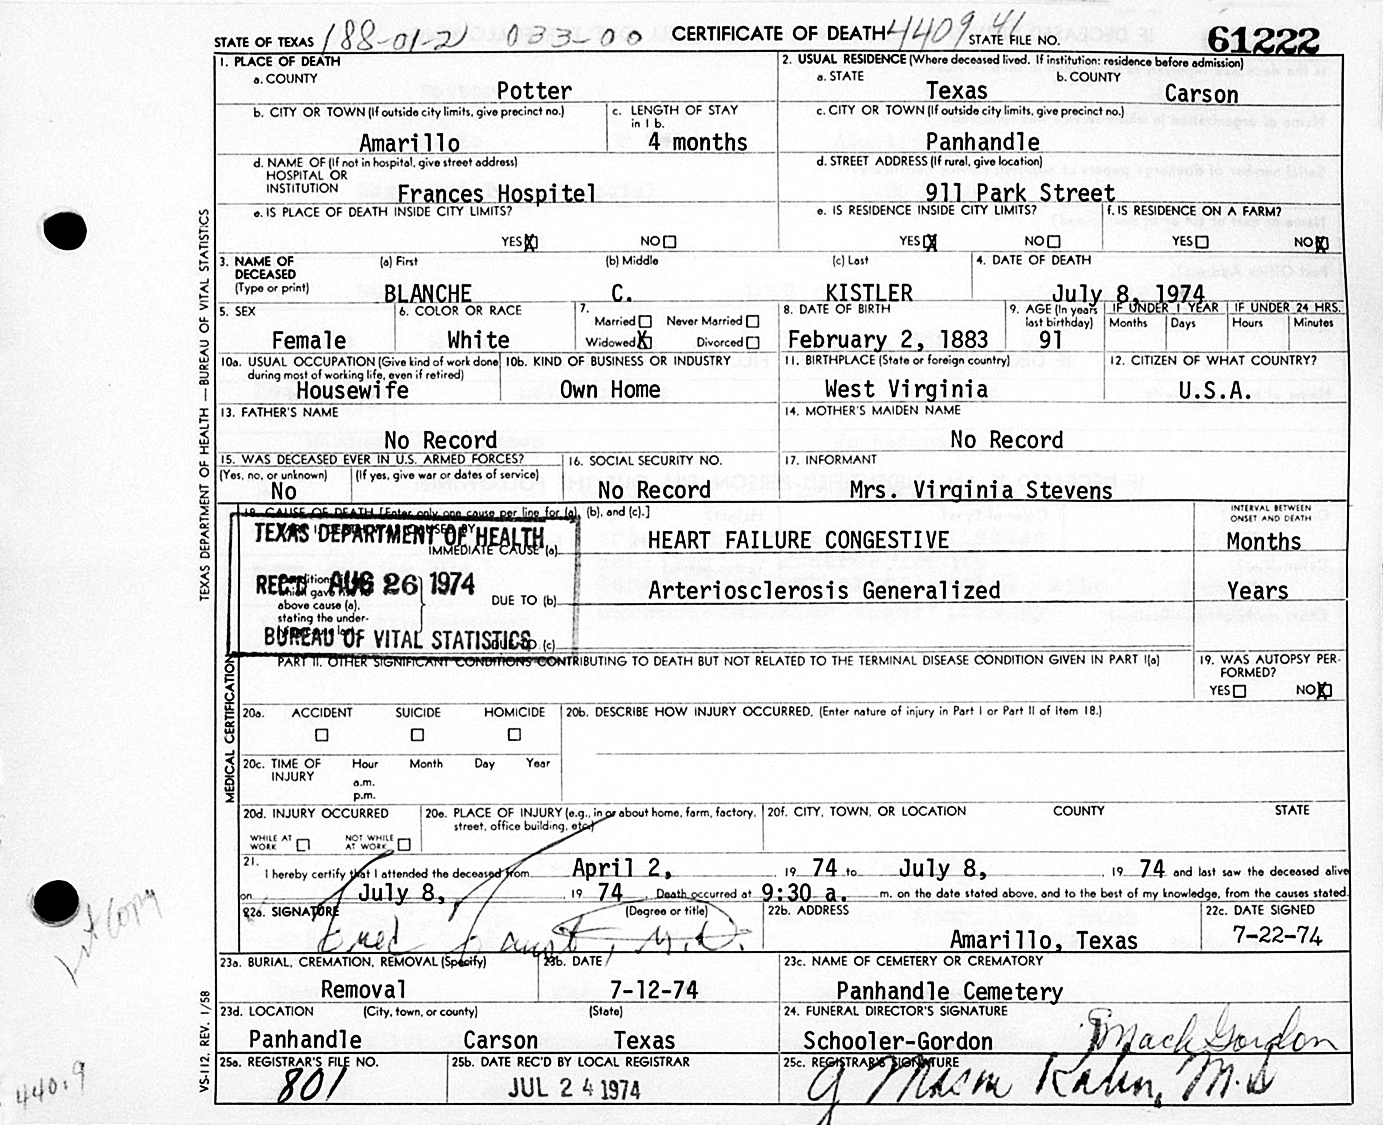 STATE OF TEXAS 188-01-21 033-00 CERTIFICATE OF DEATH 4409 41 STATE FILE NO. 61222
1. PLACE OF DEATH
a. COUNTY
Potter
2. USUAL RESIDENCE (Where deceased lived. If institution: residence before admission)
a. STATE b. COUNTY
Texas Carson
b. CITY OR TOWN (If outside city limits, give precinct no.)
Amarillo
c. LENGTH OF STAY
in 1 b.
4 months
c. CITY OR TOWN (If outside city limits, give precinct no.)
Panhandle
d. NAME OF (If not in hospital, give street address)
HOSPITAL OR
INSTITUTION Frances Hospitel
d. STREET ADDRESS (If rural, give location)
911 Park Street
e. IS PLACE OF DEATH INSIDE CITY LIMITS?
YES X NO
e. IS RESIDENCE INSIDE CITY LIMITS?
YES X NO
f. IS RESIDENCE ON A FARM?
YES NO X
3. NAME OF
DECEASED
(Type or print)
(a) First (b) Middle (c) Last
BLANCHE C. KISTLER
4. DATE OF DEATH
July 8, 1974
5. SEX
Female
6. COLOR OR RACE
White
7.
Married Never Married
Widowed X Divorced
8. DATE OF BIRTH
February 2, 1883
9. AGE (In years
last birthday)
91
IF UNDER 1 YEAR
Months Days
IF UNDER 24 HRS.
Hours Minutes
10a. USUAL OCCUPATION (Give kind of work done
during most of working life, even if retired)
Housewife
10b. KIND OF BUSINESS OR INDUSTRY
Own Home
11. BIRTHPLACE (State or foreign country)
West Virginia
12. CITIZEN OF WHAT COUNTRY?
U.S.A.
13. FATHER'S NAME
No Record
14. MOTHER'S MAIDEN NAME
No Record
15. WAS DECEASED EVER IN U.S. ARMED FORCES?
(Yes, no, or unknown) (If yes, give war or dates of service)
No
16. SOCIAL SECURITY NO.
No Record
17. INFORMANT
Mrs. Virginia Stevens
18. CAUSE OF DEATH [Enter only one cause per line for (a), (b), and (c).]
PART I. DEATH WAS CAUSED BY
IMMEDIATE CAUSE (a) HEART FAILURE CONGESTIVE
INTERVAL BETWEEN
ONSET AND DEATH
Months
Conditions, if any,
which gave rise to
above cause (a),
stating the under-
lying cause last.
DUE TO (b) Arteriosclerosis Generalized Years
DUE TO (c)
TEXAS DEPARTMENT OF HEALTH
REC'D AUG 26 1974
BUREAU OF VITAL STATISTICS
PART II. OTHER SIGNIFICANT CONDITIONS CONTRIBUTING TO DEATH BUT NOT RELATED TO THE TERMINAL DISEASE CONDITION GIVEN IN PART I(a)
19. WAS AUTOPSY PER-
FORMED?
YES NO X
20a. ACCIDENT SUICIDE HOMICIDE
20b. DESCRIBE HOW INJURY OCCURRED. (Enter nature of injury in Part I or Part II of Item 18.)
20c. TIME OF
INJURY
Hour Month Day Year
a.m.
p.m.
20d. INJURY OCCURRED
WHILE AT
WORK
NOT WHILE
AT WORK
20e. PLACE OF INJURY (e.g., in or about home, farm, factory,
street, office building, etc.)
20f. CITY, TOWN, OR LOCATION COUNTY STATE
21.
I hereby certify that I attended the deceased from April 2, 19 74 to July 8, 19 74 and last saw the deceased alive
on July 8, 19 74 Death occurred at 9:30 a. m. on the date stated above, and to the best of my knowledge, from the causes stated.
22a. SIGNATURE (Degree or title)
Fred Faust, M.D.
22b. ADDRESS
Amarillo, Texas
22c. DATE SIGNED
7-22-74
23a. BURIAL, CREMATION, REMOVAL (Specify)
Removal
23b. DATE
7-12-74
23c. NAME OF CEMETERY OR CREMATORY
Panhandle Cemetery
23d. LOCATION (City, town, or county) (State)
Panhandle Carson Texas
24. FUNERAL DIRECTOR'S SIGNATURE
Schooler-Gordon Mack Gordon
25a. REGISTRAR'S FILE NO.
801
25b. DATE REC'D BY LOCAL REGISTRAR
JUL 24 1974
25c. REGISTRAR'S SIGNATURE
J Mason Kahn, M.D
TEXAS DEPARTMENT OF HEALTH — BUREAU OF VITAL STATISTICS
MEDICAL CERTIFICATION
VS-112 REV. 1/58
Copy
440.9